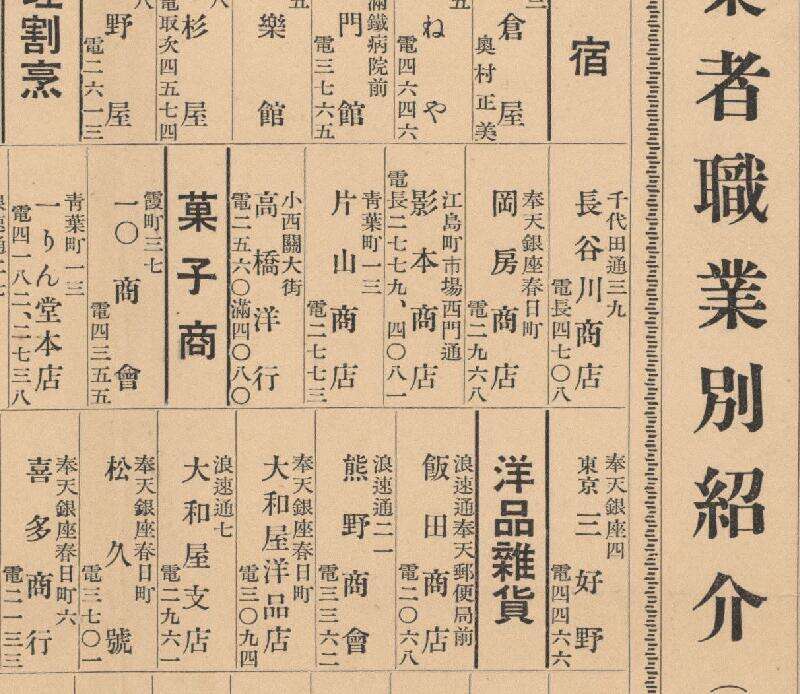 業者職業別紹介
宿
倉屋
奥村正美
ねや
電四六四六
滿鐵病院前
門館
電三七六五
樂館
杉屋
電取次四五七四
野屋
電二六一三
割烹
千代田通三九
長谷川商店
電長四七〇八
奉天銀座春日町
岡房商店
電二九六八
江島町市場西門通
影本商店
電長二七七九、四〇八一
靑葉町一三
片山商店
電二七七三
小西關大街
高橋洋行
電二五六〇滿四〇八〇
菓子商
霞町三七
一〇商會
電四三五五
靑葉町一三
一りん堂本店
電四一八二、二七三八
奉天銀座四
東京三好野
電四四六六
洋品雜貨
浪速通奉天郵便局前
飯田商店
電二〇六八
浪速通二一
熊野商會
電三三六二
奉天銀座春日町
大和屋洋品店
電三〇九四
浪速通七
大和屋支店
電二九六一
奉天銀座春日町
松久號
電三七〇一
奉天銀座春日町六
喜多商行
電二一三三